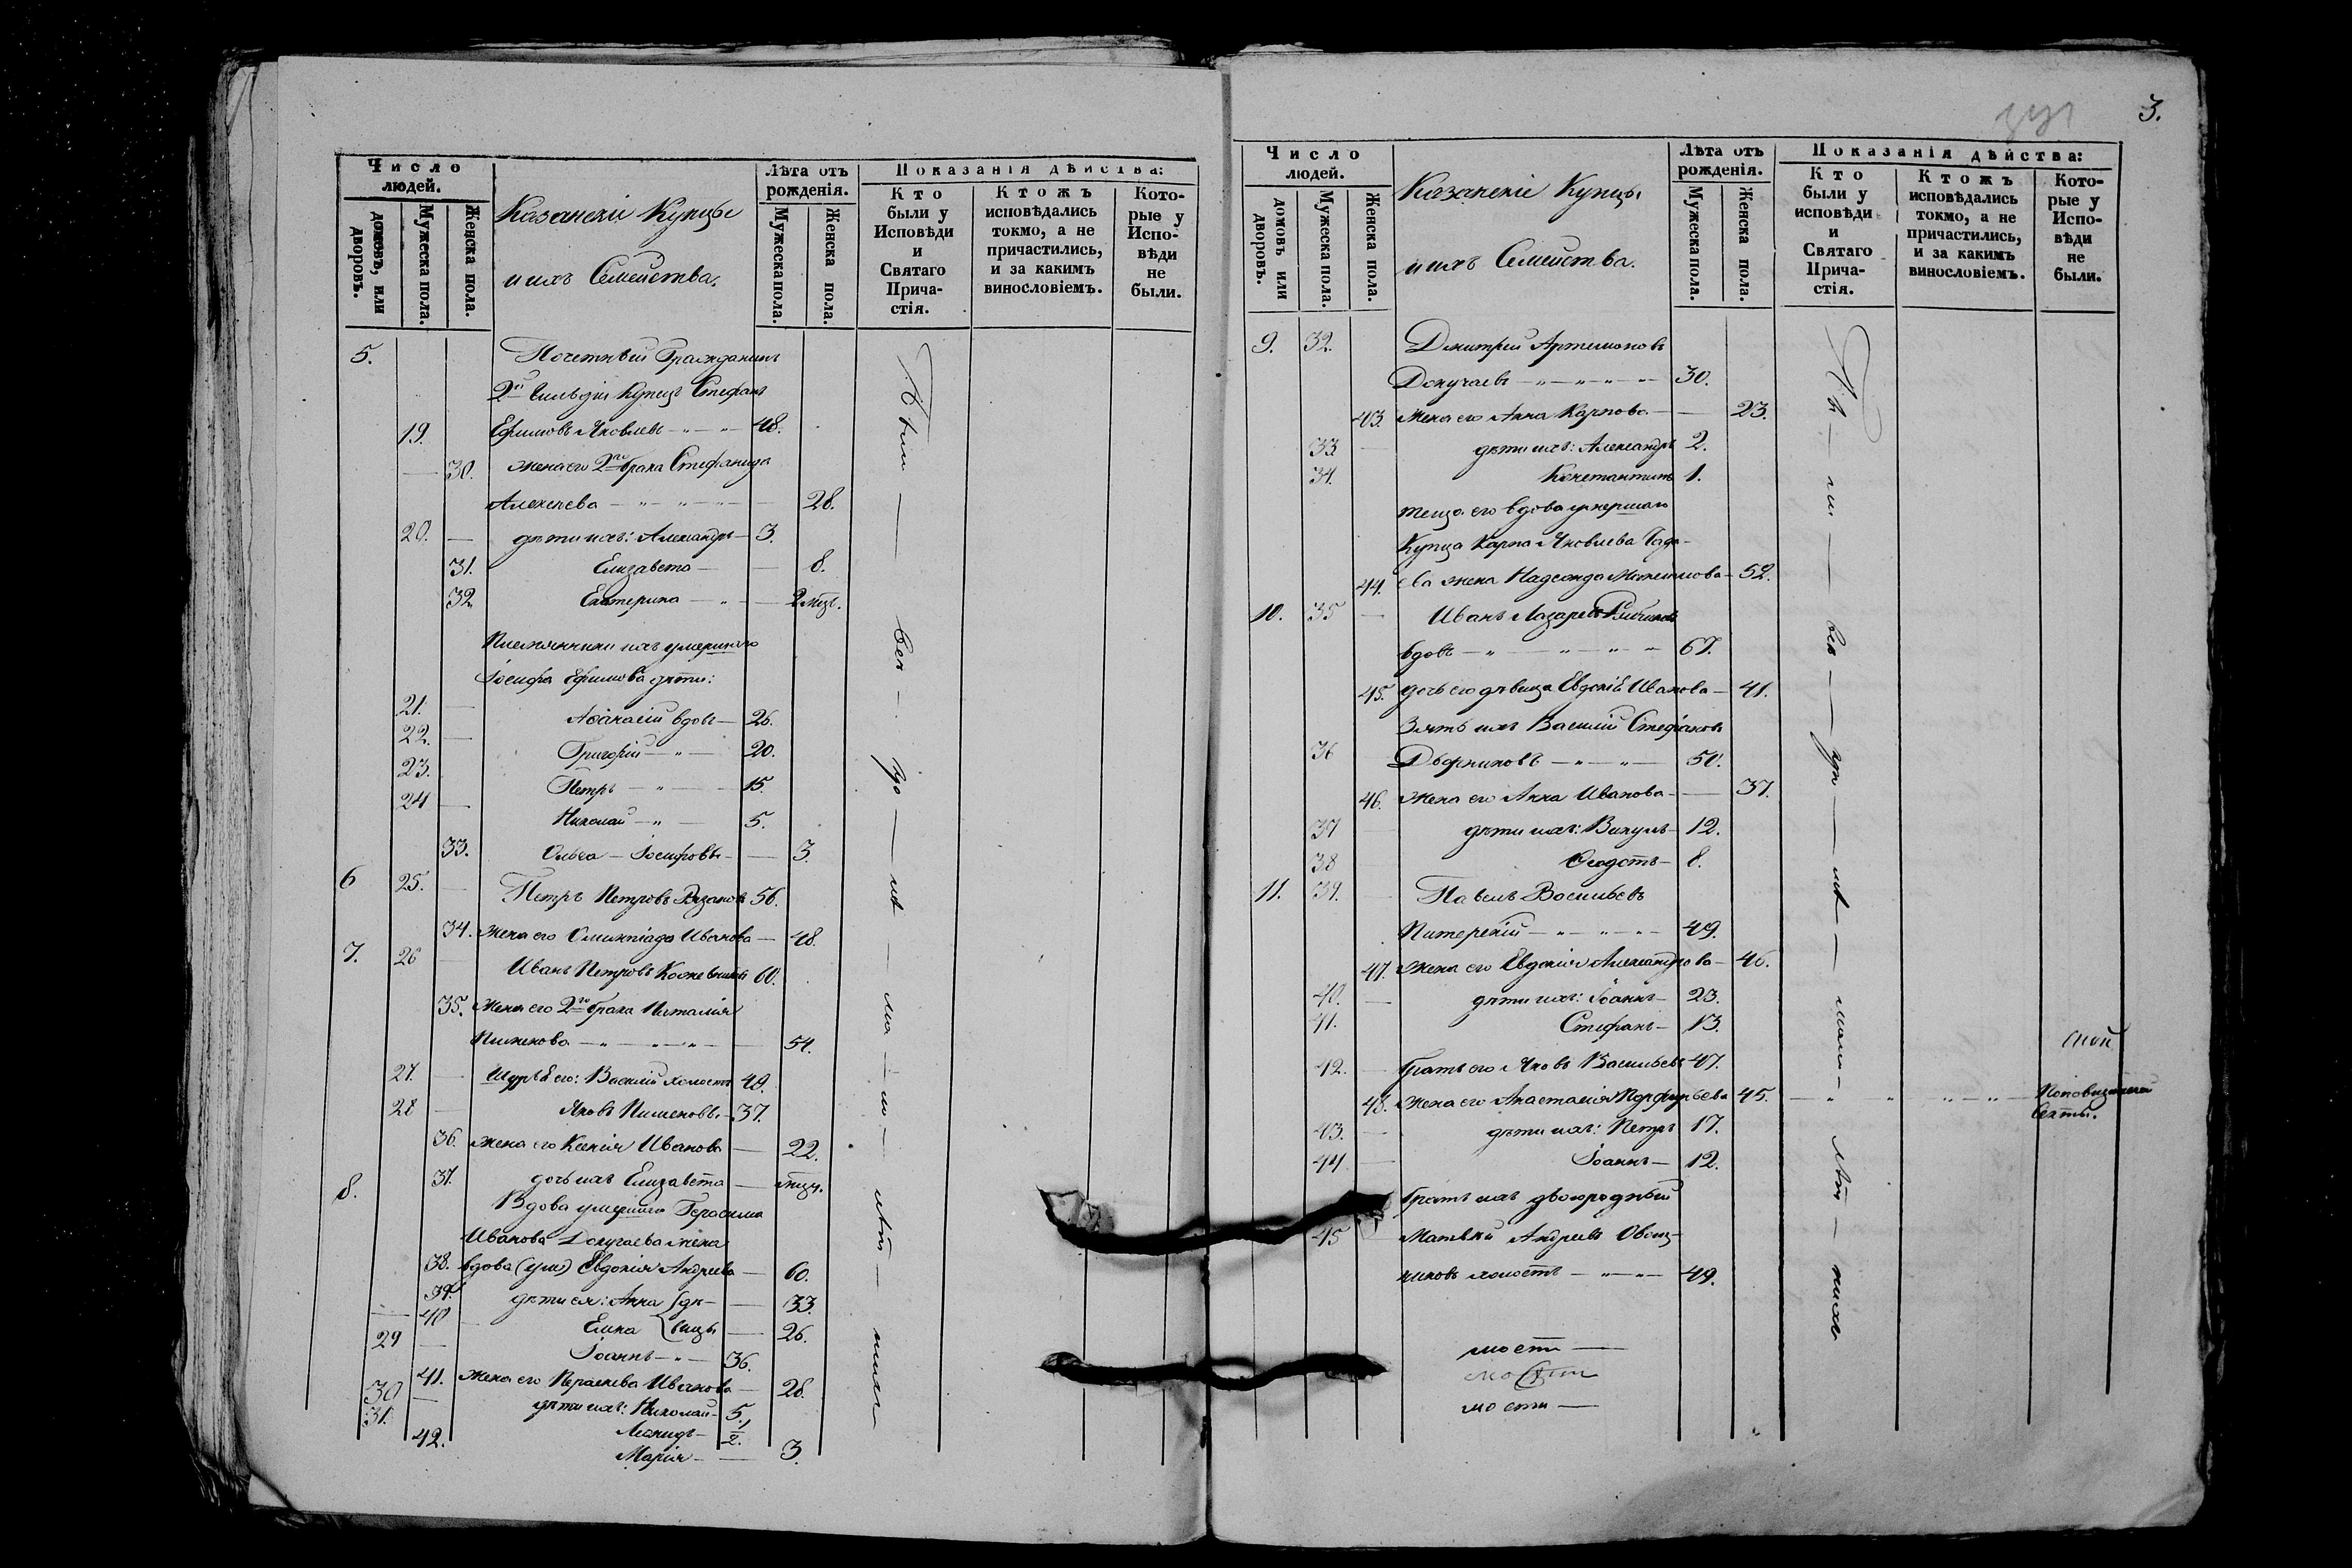 Число людей.
домовъ, или дворовъ.
Мужеска пола.
Женска пола.
Казанскіе Купцы
и ихъ Семейства.
Лѣта отъ рожденія.
Мужеска пола.
Женска пола.
Показанія дѣйства:
Кто были у Исповѣди и Святаго Причастія.
Ктожъ исповѣдались токмо, а не причастились, и за какимъ винословіемъ.
Которые у Исповѣди не были.
5. Почетный Гражданинъ
2й Гильдіи Купецъ Стефанъ
19. Ефимовъ Яковлевъ — 48.
30. жена его 2го брака Стефанида
Алексеева — 28.
20. дѣти ихъ: Александръ — 3.
31. Елизавета — 8.
32. Екатерина — 2 мѣс.
Племянники ихъ умершаго
Іосифа Ефимова дѣти:
21. Аѳанасій вдовъ — 26.
22. Григорій — 20.
23. Петръ — 15.
24 Николай — 5.
33. Ольга — Іосифовы — 3.
6 25. Петръ Петровъ Рязановъ 56.
34. жена его Олимпіада Иванова — 48.
7. 26 Иванъ Петровъ Кожевниковъ 60.
35. Жена его 2го брака Наталія
Пименова — 54.
27. Шурья его: Василій холостъ 40.
28 Яковъ Пименовы — 37.
36. жена его Ксенія Иванова — 22.
37. дочь ихъ Елизавета —
8. Вдова умершаго Герасима
Иванова Докучаева жена
38. вдова (ум) Евдокія Андреева — 60.
39. дѣти ея: Анна } дѣ- — 33.
40 Елена } вицы — 26.
29 Іоаннъ — 36.
41. жена его Параскева Иванова — 28.
30 дѣти ихъ: Николай — 5.
31. Леонидъ — 1/2.
42. Марія — 3.
3.
Число людей.
домовъ или дворовъ.
Мужеска пола.
Женска пола.
Казанскіе Купцы
и ихъ Семейства.
Лѣта отъ рожденія.
Мужеска пола.
Женска пола.
Показанія дѣйства:
Кто были у исповѣди и Святаго Причастія.
Ктожъ исповѣдались токмо, а не причастились, и за какимъ винословіемъ.
Которые у Исповѣди не были.
9. 32. Дмитрій Артемоновъ
Докучаевъ — 30.
43. жена его Анна Карпова — 23.
33 дѣти ихъ: Александръ 2.
34. Константинъ 1.
теща его вдова умершаго
Купца Карпа Яковлева
44. жена Надежда — 52.
10. 35 Иванъ Лазаревъ
вдовъ — 67.
45. дочь его дѣвица Евдокія Иванова — 41.
Зять ихъ Василій Стефановъ
36 Дворниковъ — 50.
46. жена его Анна Иванова — 37.
37 дѣти ихъ: Викулъ — 12.
38 Ѳеодотъ — 8.
11. 39. Павелъ Васильевъ
Питерскій — 49.
47. жена его Евдокія Александрова — 46.
40. дѣти ихъ: Іоаннъ — 23.
41. Стефанъ — 13.
42. братъ его Яковъ Васильевъ 47.
48. жена его Анастасія Порфирьева 45. Поповщинской
секты.
43. дѣти ихъ: Петръ 17.
44. Іоаннъ — 12.
братъ ихъ двоюродный
45 Матвѣй Андреевъ Овощ-
никовъ холостъ — 49.